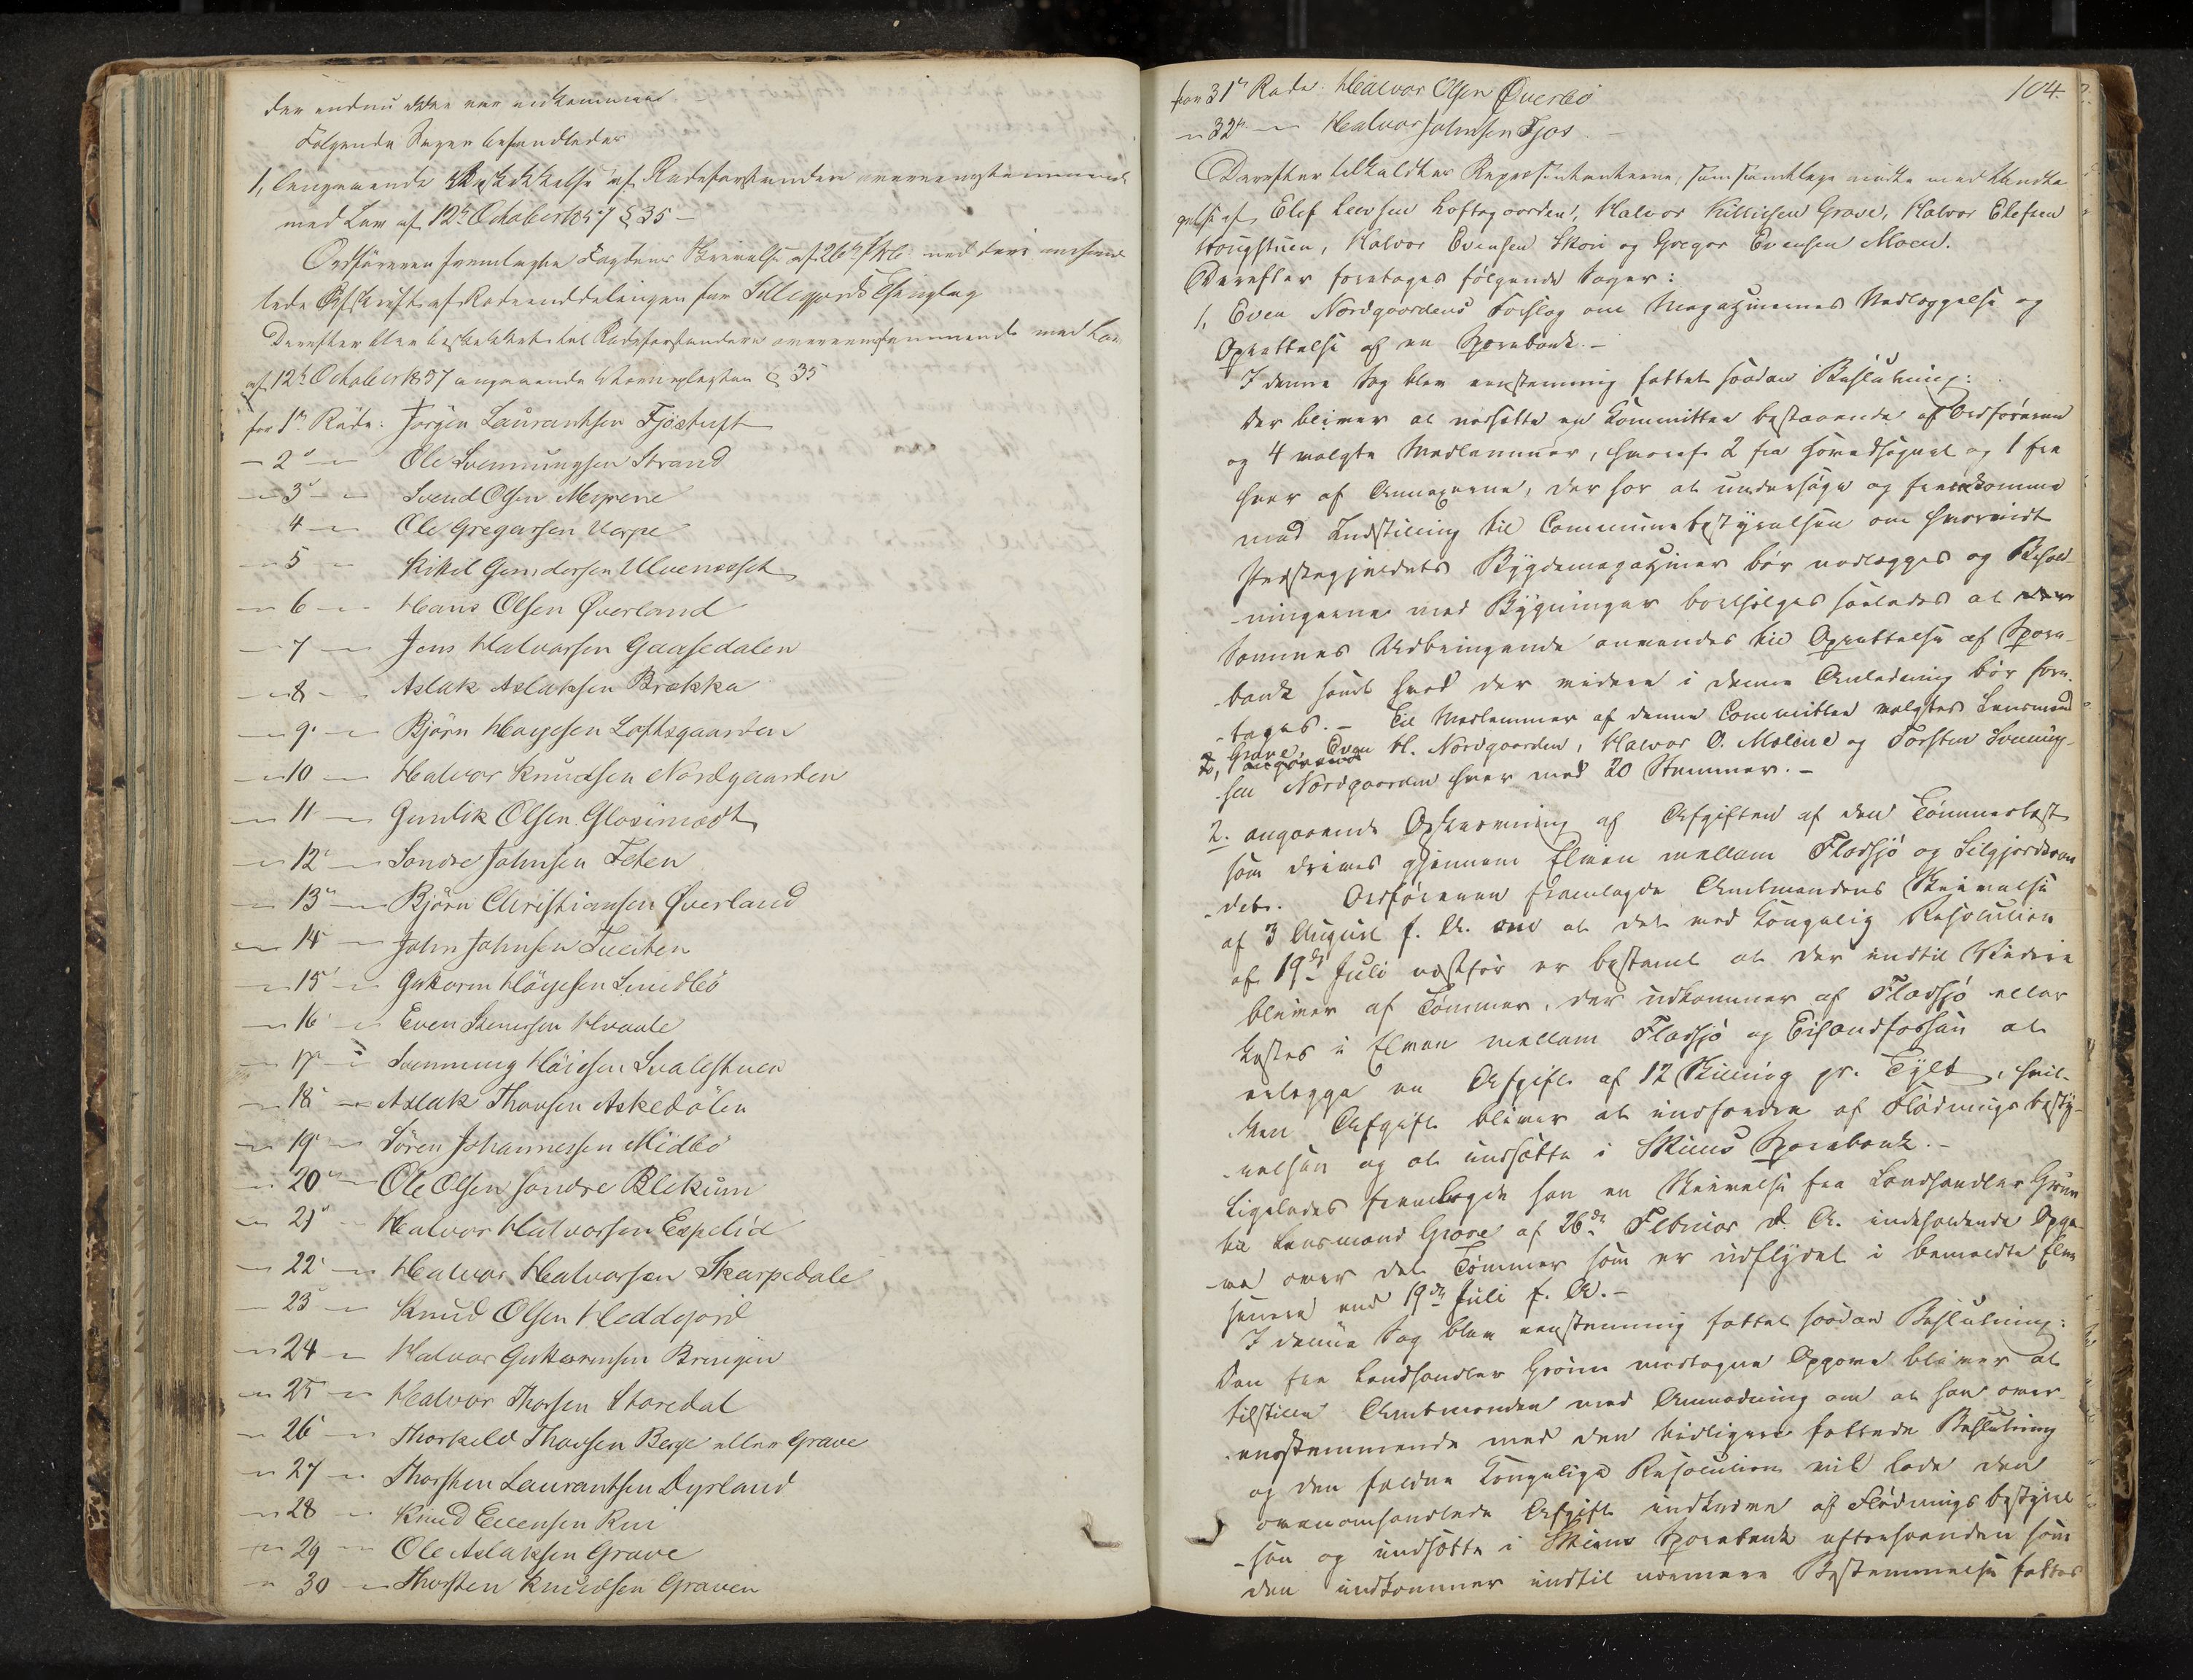 der endnu ikke var ankommen
Følgende Sager behandledes
1, angaaende Beskikkelse af Rodeforstandere overensstemmende
med Lov af 12te October 1857 § 35 –
Ordføreren fremlagde Fogdens Skrivelse af 26de med deri
Afskrift af Rodeinddelingen for Sillegjords Thinglag
Derefter blev beskikket til Rodeforstandere overeensstemmende med Lov
af 12te October 1857 angaaende Værnepligten § 35
for 1ste Rode: Jörgen Laurantsen Fjöstuft
– 2 – Ole Svennungsen Strand
– 3 – Svend Olsen Myrene
4 – Ole Gregarsen Uerpe
– 5 – Kikel Gundersen Ulvenæsset
– 6 – Hans Olsen Øverland
– 7 – Jens Halvorsen Gaasedalen
– 8 – Aslak Aslaksen Brækka
– 9 – Björn Høyesen Loftsgaarden
– 10 – Halvor Knudsen Nordgaarden
– 11 – Gunlik Olsen Glosimodt
– 12 – Sondre Johnsen Feten
– 13 – Björn Christiansen Øverland
– 14 – John Johnsen Tveiten
– 15 – Guttorm Høyesen Smedbö
– 16 – Even Stenersen Hvaale
– 17 – Svennung Höiesen Svalestuen
– 18 – Aslak Thovsen Askedalen
– 19 – Sören Johannesen Midbö
– 20 – Ole Olsen söndre Blekum
– 21 – Halvor Halvorsen Espelid
– 22 – Halvor Halvorsen Skarpedale
– 23 – Knud Olsen Heddejord
– 24 – Halvor Guttormsen Bringen
– 25 – Halvor Thovsen Storedal
– 26 – Thorkeld Thovsen Berge eller Grave
– 27 – Thorsten Laurantsen Dyrland
– 28 – Knud Evensen Rui
– 29 – Ole Aslaksen Grave
– 30 – Thorsten Knudsen Graven
104.
for 31te Rode: Halvor Olsen Øverbö
– 32 – Halvor Johnsen Tjos –
Derefter tilkaldtes Repræsentanterne, som samtlige mødte med Undta
gelse af Elef Leevsen Loftsgaarden, Halvor Killiksen Grave, Halvor Elefsen
Hougstuen, Halvor Evensen Skori og Gregar Evensen Moen.
Derefter foretoges følgende Sager:
1, Even Nordgaardens Forslag om Magazinernes Nedlæggelse og
Oprettelse af en Sparebank. –
I denne Sag blev eenstemmig fattet saadan Beslutning:
Der bliver at nedsætte en Committee bestaaende af Ordføreren
og 4 valgte Medlemmer, hvoraf 2 fra Hovedsognet og 1 fra
hver af Annexerne, der har at undersøge og fremkomme
med Indstilling til Communebestyrelsen om hvorvidt
Præstegjeldets Bygdemagaziner bør nedlægges og Behold-
-ningerne med Bygninger bortsælges saaledes at
Sammes Udbringende anvendes til Oprettelse af Spare-
-bank samt hvad der videre i denne Anledning bør fore-
-tages. – Til Medlemmer af denne Committee valgtes Lensmand
2, angaaende
Grave, Even H. Nordgaarden, Halvor O. Moline og Torsten Svennung-
-sen Nordgaarden hver med 20 Stemmer. –
2. angaaende Opkrævning af Afgiften af den Tømmerlast
som drives gjennem Elven mellem Flaadsjø og Silgjordsvan
-det. Ordføreren fremlagde Amtmandens Skrivelse
af 3 August f. A. om at det ved Kongelig Resolution
af 19de Juli næstfør er bestemt at der indtil Videre
bliver af Tømmer, der udkommer af Flaadsjø eller
kastes i Elven mellem Flaadsjø og Eisandfossen at
erlægge en Afgift af 12 Skilling pr. Tylt, hvil-
-ken Afgift bliver at indfordre af Flødningsbesty-
-relsen og at indsætte i Skiens Sparebank. –
Ligeledes fremlagde han en Skrivelse fra Landhandler Grøn
til Lensmand Grave af 26de Februar d. A. indeholdende Opga
-ve over det Tømmer som er udflydet i bemeldte Elv
senere end 19de Juli f. A. –
I denne Sag blev eenstemmig fattet saadan Beslutning:
Den fra Landhandler Grøn modtagne Opgave bliver at
tilstille Amtmanden med Anmodning om at han over-
-ensstemmende med den tidligere fattede Beslutning
og den faldne Kongelige Resolution vil lade den
ovenomhandlede Afgift inddrive af Flødningsbestyrel
-sen og indsætte i Skiens Sparebank efterhvanden som
den indkommer indtil nærmere Bestemmelse fattes